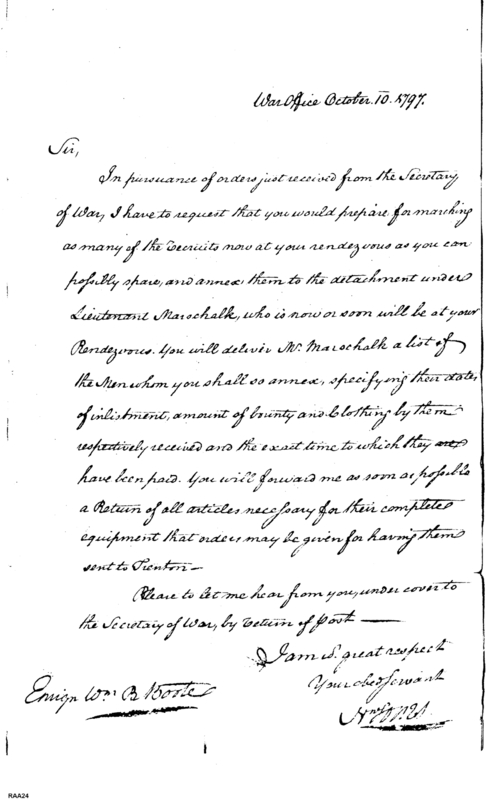 War Office October 10. 1797.
Sir,
In pursuance of orders just received from the Secretary
of War, I have to request that you would prepare for marching
as many of the Recruits now at your rendezvous as you can
possibly spare, and annex them to the detachment under
Lieutenant Marschalk, who is now or soon will be at your
Rendezvous. You will deliver Mr. Marschalk a list of
the Men whom you shall so annex, specifying their dates
of inlistment, amount of bounty and Clothing by them
respectively received and the exact time to which they are
have been paid. You will forward me as soon as possible
a Return of all articles necessary for their complete
equipment that orders may be given for having them
sent to Trenton—
Please to let me hear from you, under cover to
the Secretary of War, by return of Post—
I am Sr. great respect
Your obed. servant
Ensign Wm. B Boote
RAA24